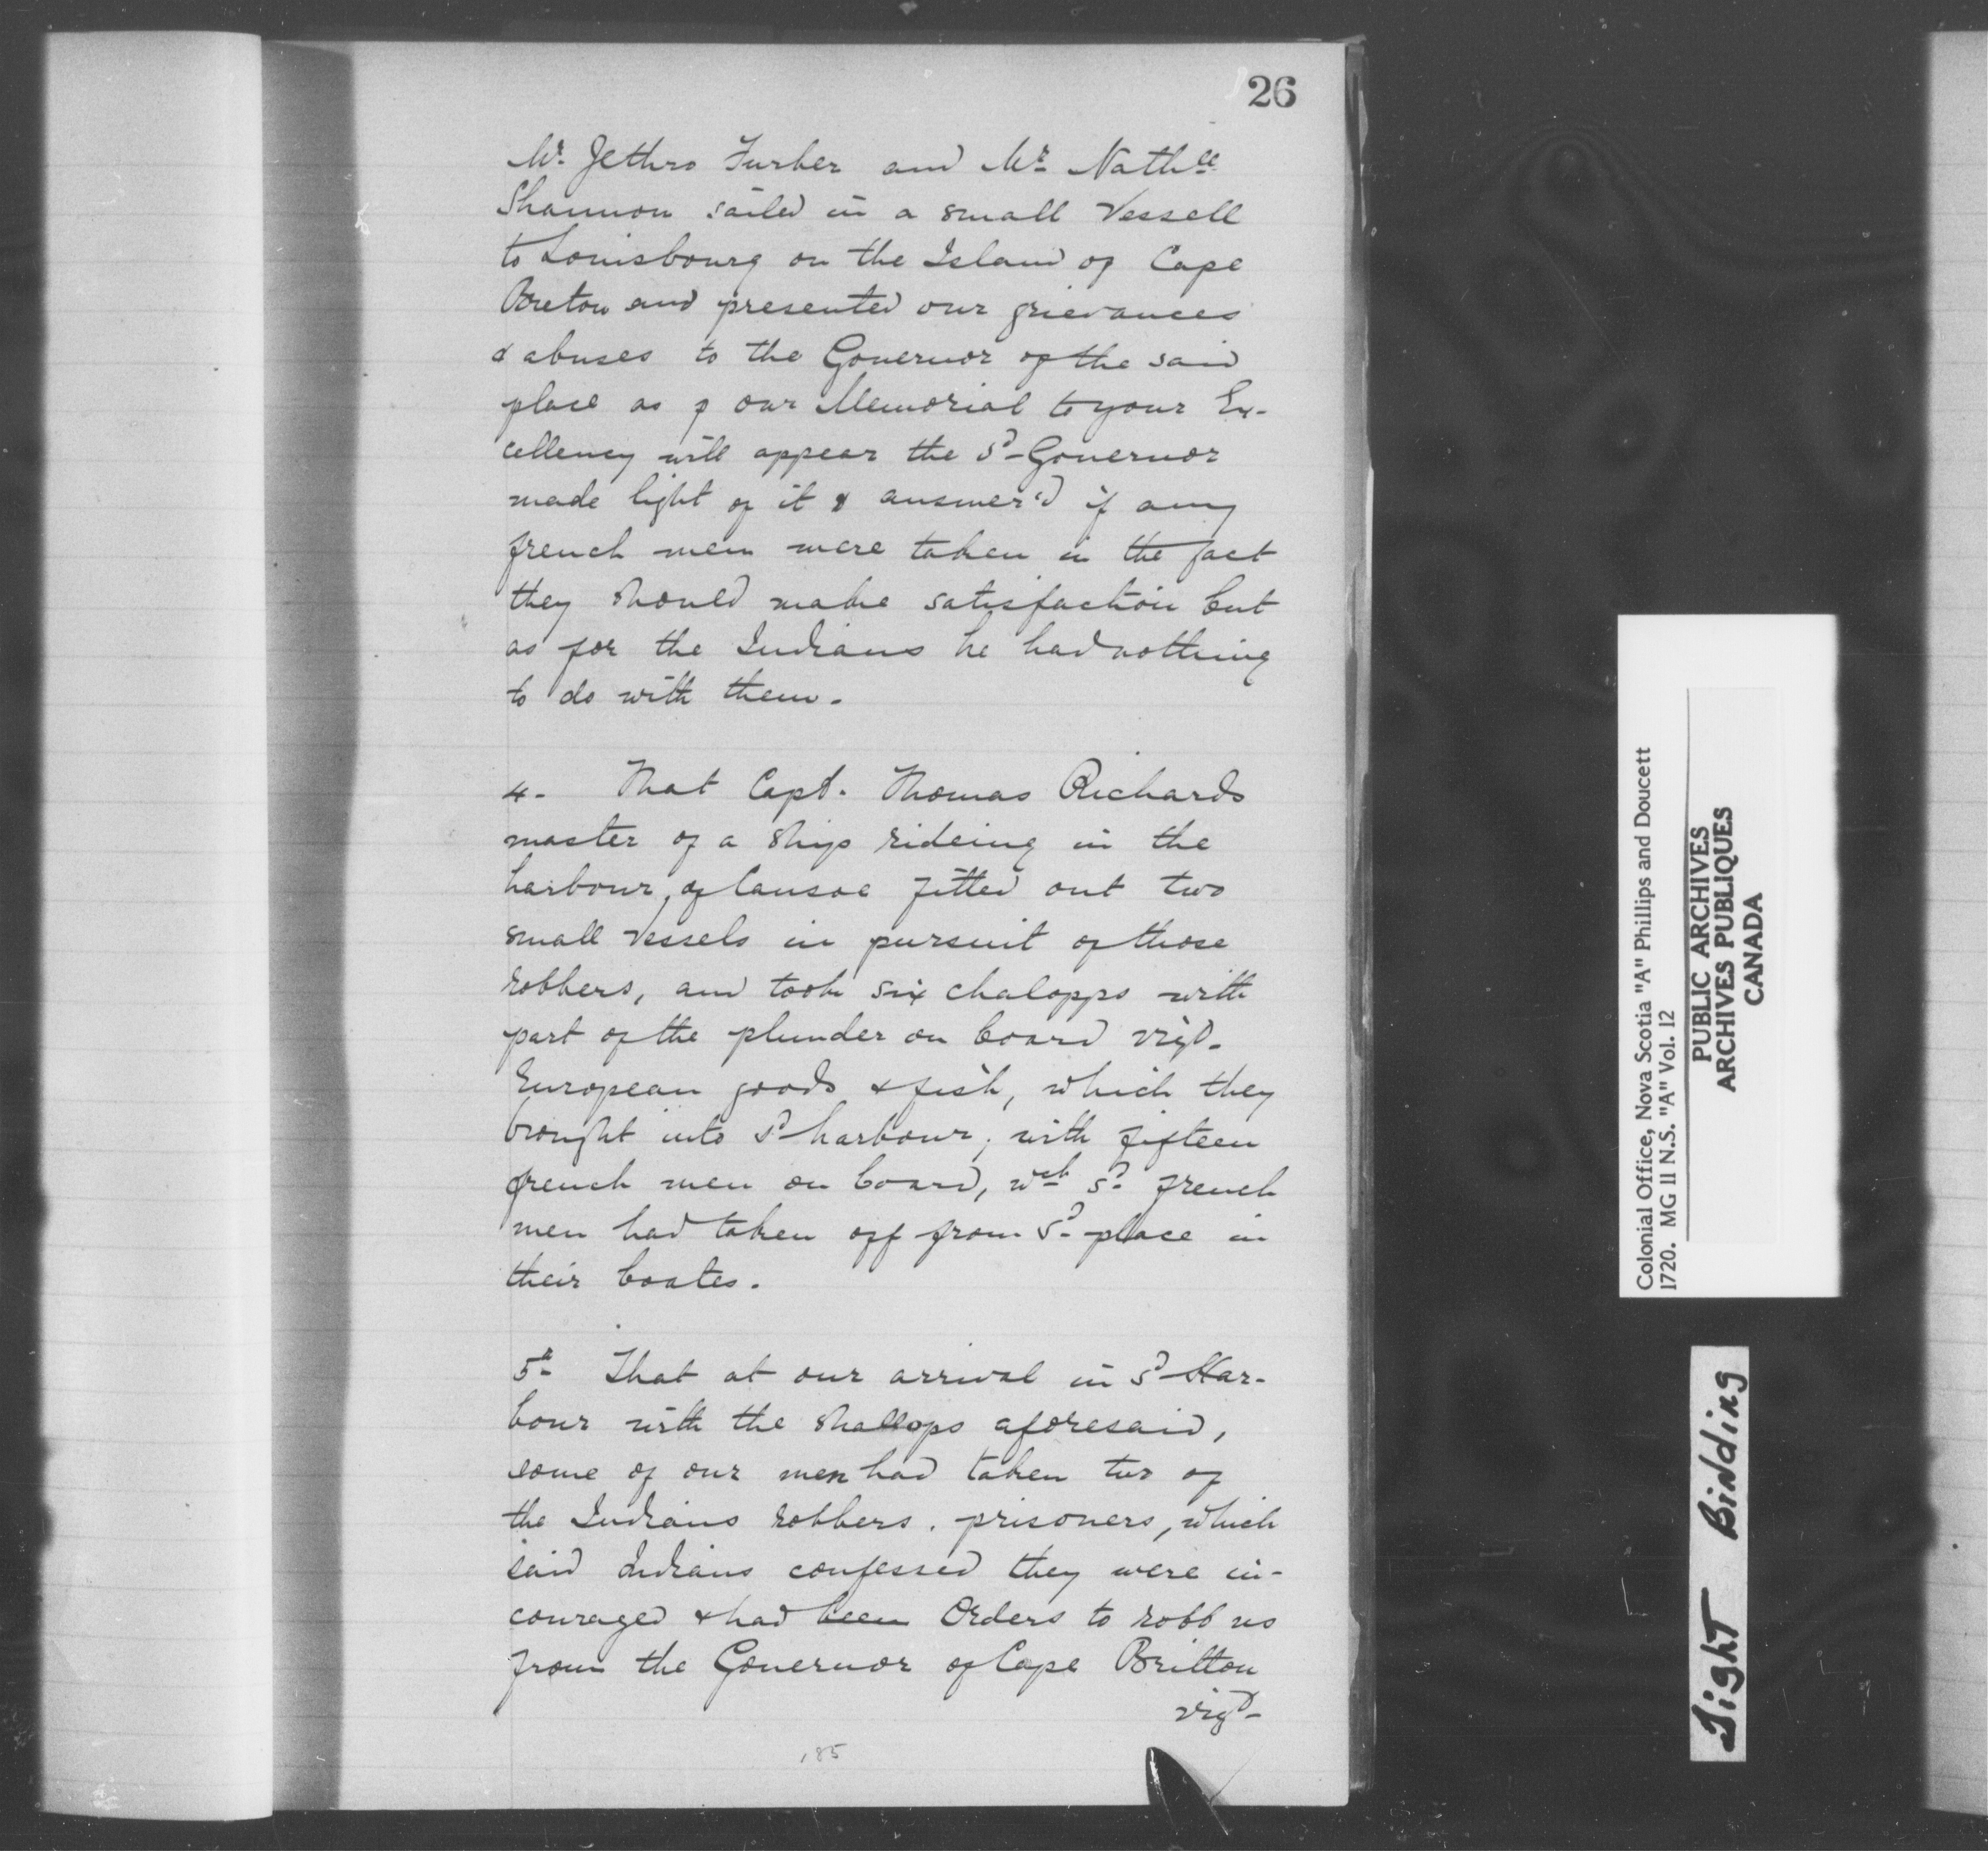 26
Mr. Jethro Furber and Mr. Nathll
Shannon sailed in a small Vessell
to Louisbourg on the Island of Cape
Breton and presented our grievances
& abuses to the Governor of the said
place as p our Memorial to your Ex-
cellency will appear the Sd Governor
made light of it & answer'd if any
french men were taken in the fact
they should make satisfaction but
as for the Indians he had nothing
to do with them.
4. That Capt. Thomas Richards
master of a ship rideing in the
harbour, of Cansoe fitted out two
small vessels in pursuit of those
robbers, and took six chalopps with
part of the plunder on board vizd.
European goods & fish, which they
brought into sd harbour, with fifteen
french men on board, wch sd french
men had taken off from sd place in
their boates.
5th That at our arrival in sd Har-
bour with the shallops aforesaid,
some of our men had taken two of
the Indians robbers. prisoners, which
said Indians confessed they were in-
couraged & had been Orders to robb us
from the Governor of Cape Britton
vizd
185
Colonial Office, Nova Scotia "A" Phillips and Doucett
1720. MG 11 N.S. "A" Vol. 12
PUBLIC ARCHIVES
ARCHIVES PUBLIQUES
CANADA
Tight Binding